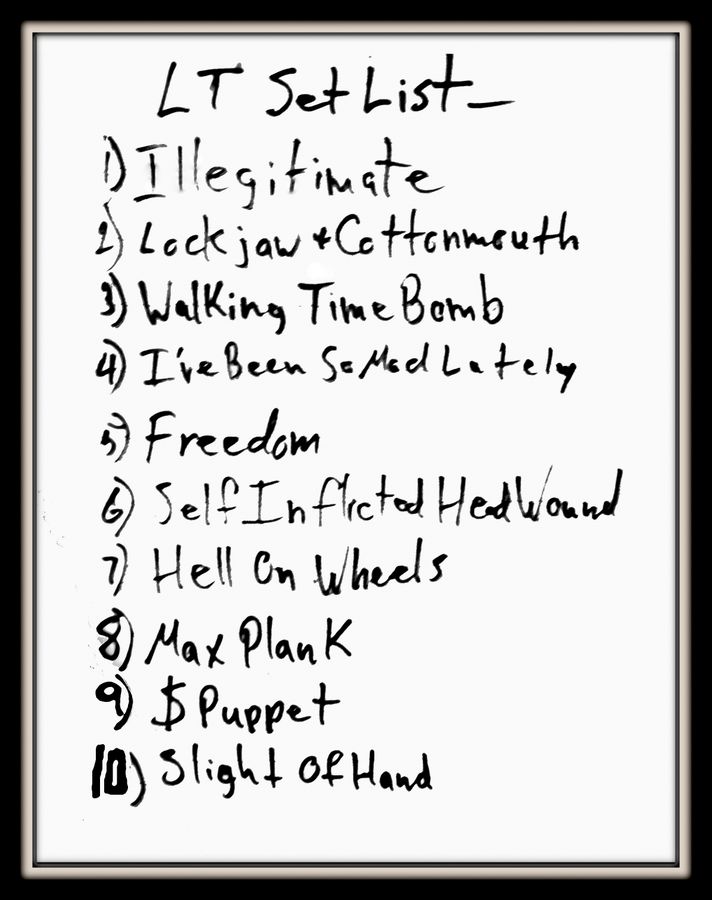 LT Set List_
1) Illegitimate
2) Lockjaw + Cottonmouth
3) Walking Time Bomb
4) I've Been So Mad Lately
5) Freedom
6) Self Inflicted Head Wound
7) Hell On Wheels
8) Max Plank
9) $ Puppet
10) Slight Of Hand